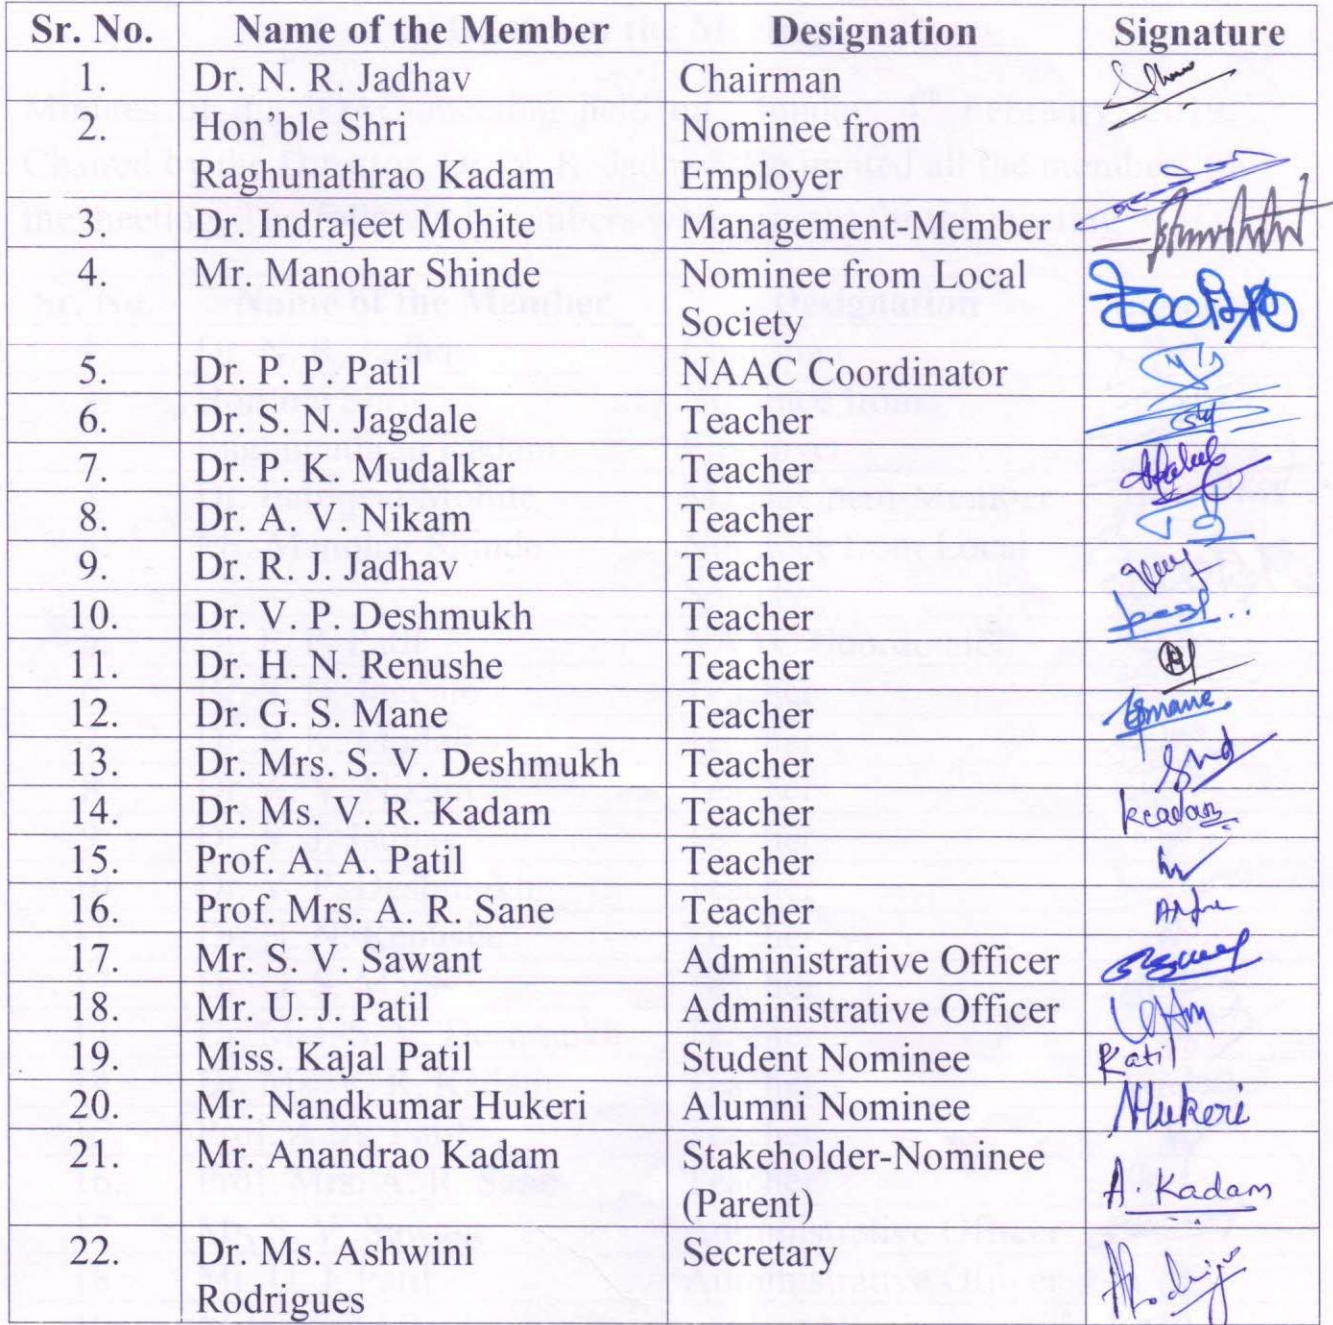 Sr. No. Name of the Member Designation Signature
1. Dr. N. R. Jadhav Chairman
2. Hon'ble Shri Nominee from
Raghunathrao Kadam Employer
3. Dr. Indrajeet Mohite Management-Member
4. Mr. Manohar Shinde Nominee from Local
Society
5. Dr. P. P. Patil NAAC Coordinator
6. Dr. S. N. Jagdale Teacher
7. Dr. P. K. Mudalkar Teacher
8. Dr. A. V. Nikam Teacher
9. Dr. R. J. Jadhav Teacher
10. Dr. V. P. Deshmukh Teacher
11. Dr. H. N. Renushe Teacher
12. Dr. G. S. Mane Teacher
13. Dr. Mrs. S. V. Deshmukh Teacher
14. Dr. Ms. V. R. Kadam Teacher
15. Prof. A. A. Patil Teacher
16. Prof. Mrs. A. R. Sane Teacher
17. Mr. S. V. Sawant Administrative Officer
18. Mr. U. J. Patil Administrative Officer
19. Miss. Kajal Patil Student Nominee
20. Mr. Nandkumar Hukeri Alumni Nominee NHukeri
21. Mr. Anandrao Kadam Stakeholder-Nominee
(Parent) A. Kadam
22. Dr. Ms. Ashwini Secretary
Rodrigues